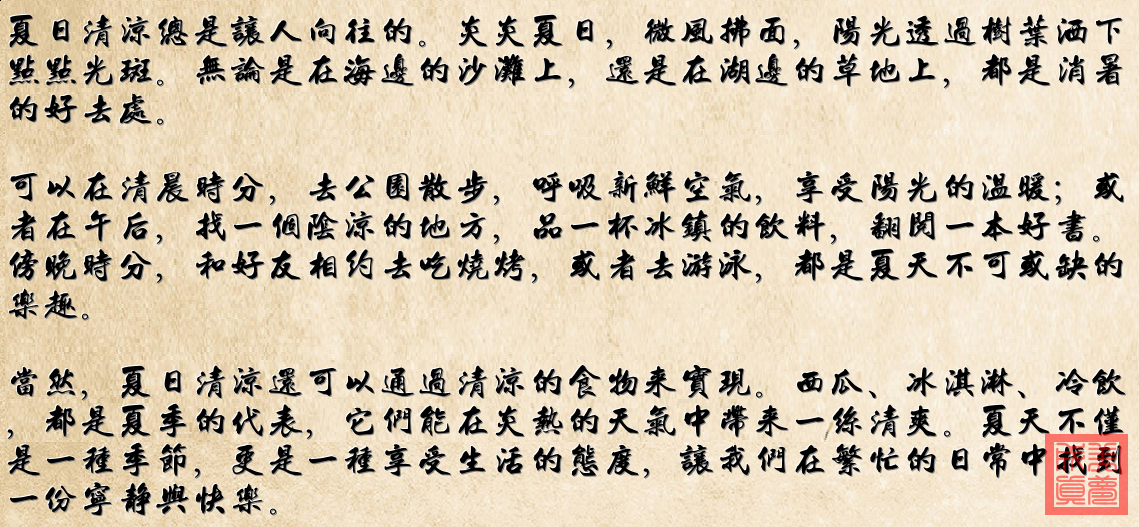 夏日清涼總是讓人向往的。炎炎夏日，微風拂面，陽光透過樹葉洒下
點點光斑。無論是在海邊的沙灘上，還是在湖邊的草地上，都是消署
的好去處。
可以在清晨時分，去公園散步，呼吸新鮮空氣，享受陽光的溫暖；或
者在午后，找一個陰涼的地方，品一杯冰鎮的飲料，翻閱一本好書。
傍晚時分，和好友相約去吃燒烤，或者去游泳，都是夏天不可或缺的
樂趣。
當然，夏日清涼還可以通過清涼的食物來實現。西瓜、冰淇淋、冷飲
，都是夏季的代表，它們能在炎熱的天氣中帶來一絲清爽。夏天不僅
是一種季節，更是一種享受生活的態度，讓我們在繁忙的日常中找到
一份寧靜與快樂。